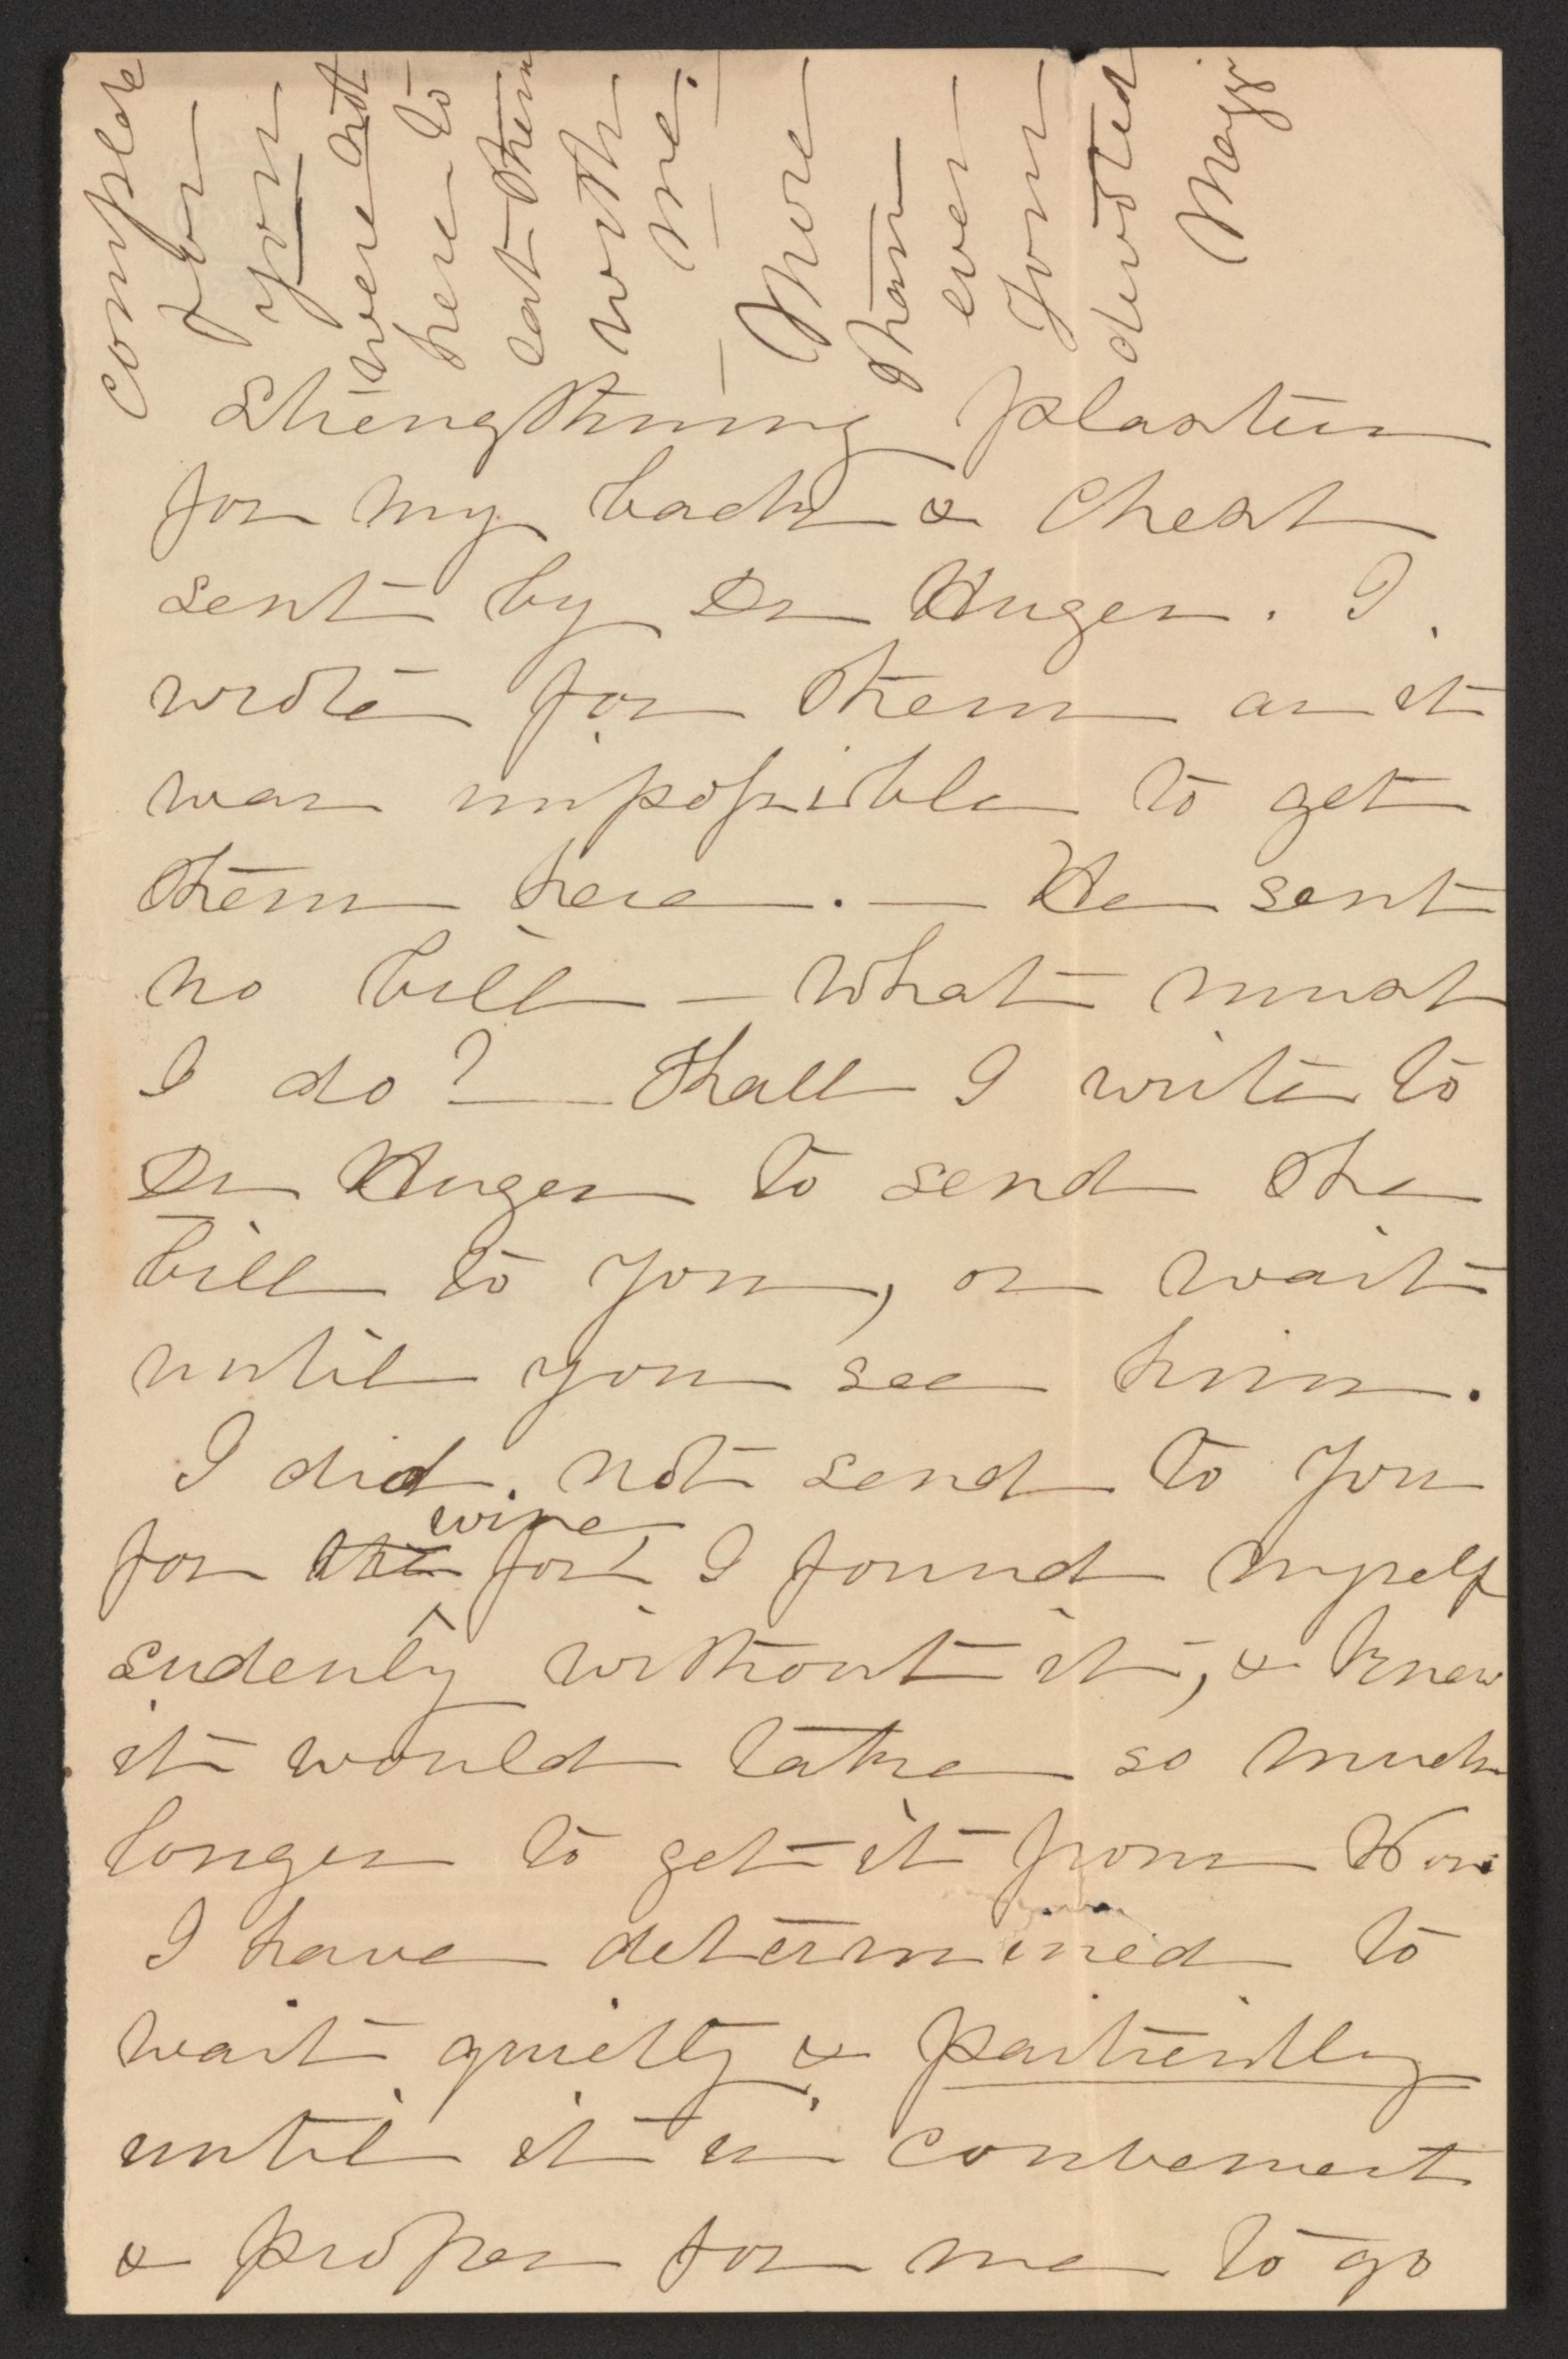 complete
for
you
were not
here to
eat them
with
me.
More
than
ever
Your
devoted
Magg
Strengthning plasters
for my back & Chest
sent by Dr Huger. I
wrote for them as it
was impossible to get
them here. — He sent
no bill — what must
I do? — Shall I write to
Dr Huger to send the
bill to you, or wait
until you see him.
I did not send to you
wine
for the for I found myself
sudenly without it, & knew
it would take so much
longer to get it from
I have determined to
wait quietly & paitiently
until it is convenient
& proper for me to go